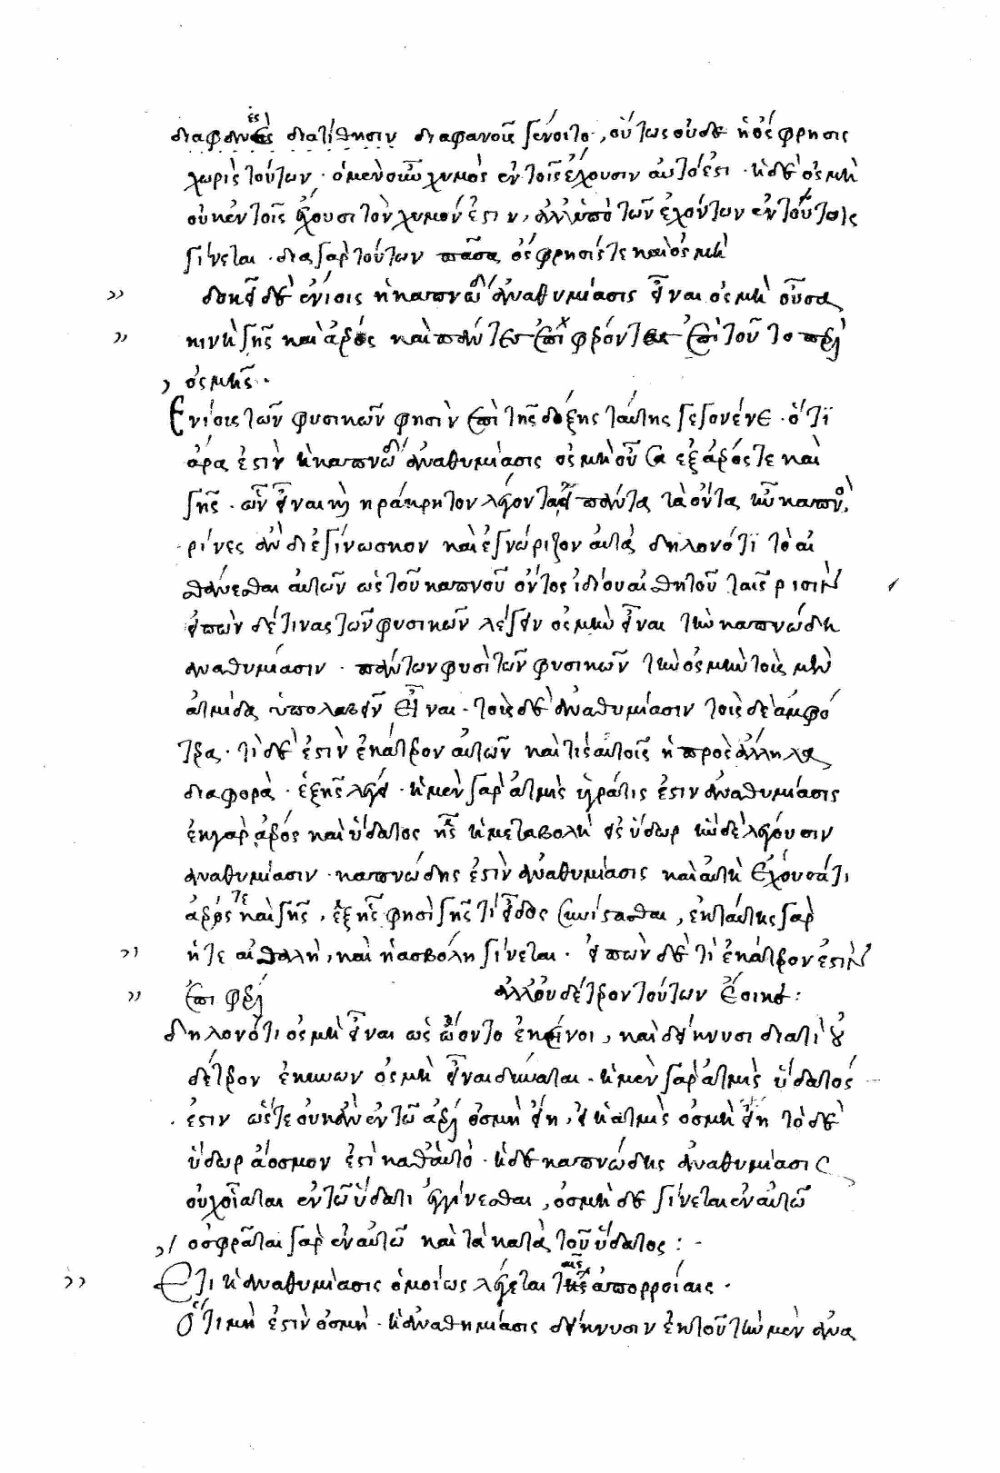 διαφανὲς διατίθησιν διαφανοῦς γένοιτο, οὕτως οὐδὲ ἡ ὄσφρησις
χωρὶς τούτων · ὁ μὲν οὖν χυμὸς ἐν τοῖς ἔχουσιν αὐτό ἐστι · ἡ δὲ ὀσμὴ
οὐκ ἐν τοῖς ἔχουσι τὸν χυμόν ἐστιν, ἀλλ' ὑπὸ τῶν ἐχόντων ἐν τούτοις
γίνεται · διὰ γὰρ τούτων πᾶσα ὄσφρησίς τε καὶ ὀσμὴ
δοκεῖ δὲ ἐνίοις ἡ καπνώδης ἀναθυμίασις εἶναι ὀσμὴ οὖσα
κοινὴ γῆς καὶ ἀέρος καὶ πάντες ἐπιφέρονται ἐπὶ τοῦτο περὶ
ὀσμῆς ·
Ἐνίοις τῶν φυσικῶν φησὶν ἐπὶ τῆς δόξης ταύτης γεγονέναι · ὅτι
ἄρα ἐστὶν ἡ καπνώδης ἀναθυμίασις ὀσμὴ οὖσα ἐξ ἀέρος τε καὶ
γῆς · ὧν εἶναι καὶ Ἡράκλειτον λέγοντα εἰ πάντα τὰ ὄντα καπνὸς
ῥῖνες ἂν διεγίνωσκον καὶ ἐγνώριζον αὐτὰ δηλονότι τὸ αἰ
σθάνεσθαι αὐτῶν ὡς τοῦ καπνοῦ ὄντος ἰδίου αἰσθητοῦ ταῖς ῥισὶν
εἰπὼν δέ τινας τῶν φυσικῶν λέγειν ὀσμὴν εἶναι τὴν καπνώδη
ἀναθυμίασιν · πάντων φησὶ τῶν φυσικῶν τὴν ὀσμὴν τοῖς μὲν
ἀτμίδα ὑπολαβεῖν εἶναι · τοῖς δὲ ἀναθυμίασιν τοῖς δὲ ἀμφό
τερα · τί δὲ ἐστὶν ἑκάτερον αὐτῶν καὶ τίς αὐτοῖς ἡ πρὸς ἄλληλα
διαφορὰ · ἑξῆς λέγει · ἡ μὲν γὰρ ἀτμὶς ὑγρότης ἐστιν ἀναθυμίασις
ἐκ γὰρ ἀέρος καὶ ὕδατος ἧς ἡ μεταβολὴ εἰς ὕδωρ ἣν δὲ λέγουσιν
ἀναθυμίασιν · καπνώδης ἐστὶν ἀναθυμίασις καὶ αὐτὴ ἔχουσά τι
ἀέρος τε καὶ γῆς, ἐξ ἧς φησὶ γῆς τι εἶδος συνίστασθαι, ἐκ ταύτης γὰρ
ἥ τε αἰθάλη, καὶ ἡ ἀσβόλη γίνεται · εἰπὼν δὲ τί ἑκάτερόν ἐστιν
ἐπιφέρει ἀλλ' οὐδέτερον τούτων ἔοικε:
δηλονότι ὀσμὴ εἶναι ὡς ᾤοντο ἐκεῖνοι, καὶ δείκνυσι διατί οὐ
δέτερον ἐκείνων ὀσμὴ εἶναι δύναται · ἡ μὲν γὰρ ἀτμὶς ὕδατός
ἐστιν ὥστε οὐκ ἂν ἐν τῷ ἀέρι ὀσμὴ εἴη, εἰ ἡ ἀτμὶς ὀσμὴ εἴη τὸ δὲ
ὕδωρ ἄοσμον ἐστὶ καθ' αὑτό · ἡ δὲ καπνώδης ἀναθυμίασις
οὐχ οἵα τε ἐν τῷ ὕδατι ἐγγίνεσθαι, ὀσμὴ δὲ γίνεται ἐν αὐτῷ
ὀσφρᾶται γὰρ ἐν αὐτῷ καὶ τὰ κατὰ τοῦ ὕδατος :-
Ἔτι ἡ ἀναθυμίασις ὁμοίως λέγεται ταῖς ἀπορροίαις ·
Ὅτι μὴ ἐστὶν ὀσμὴ · ἡ ἀναθημίασις δείκνυσιν ἐκ τοῦ τὴν μὲν ἀνα